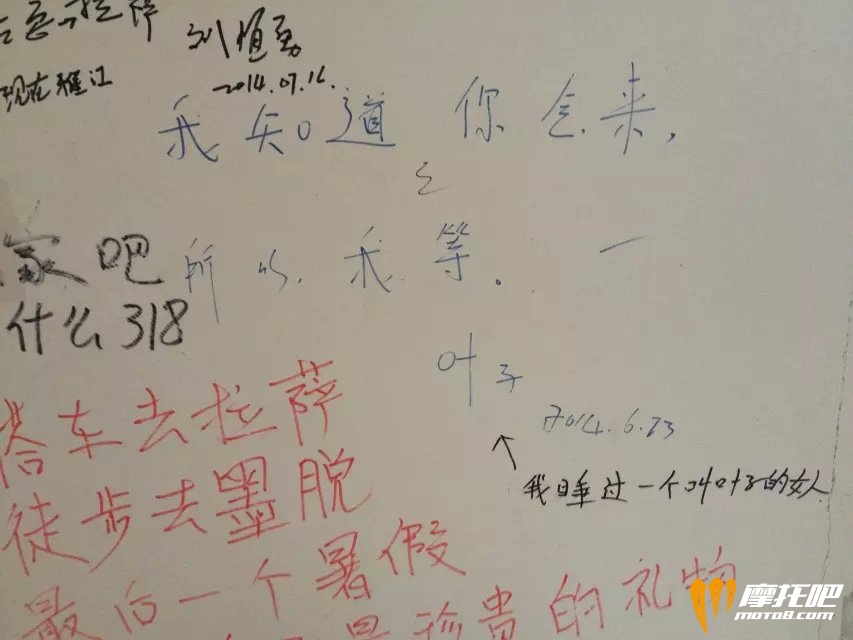 去拉萨
刘恒勇
2014.07.16.
现在雅江
我知道 你会来,
所以 我等。 一
家吧
什么318
叶子
2014.6.23
我睡过一个叫叶子的女人
搭车去拉萨
徒步去墨脱
最后一个暑假
是珍贵的礼物
摩托吧
moto8.com